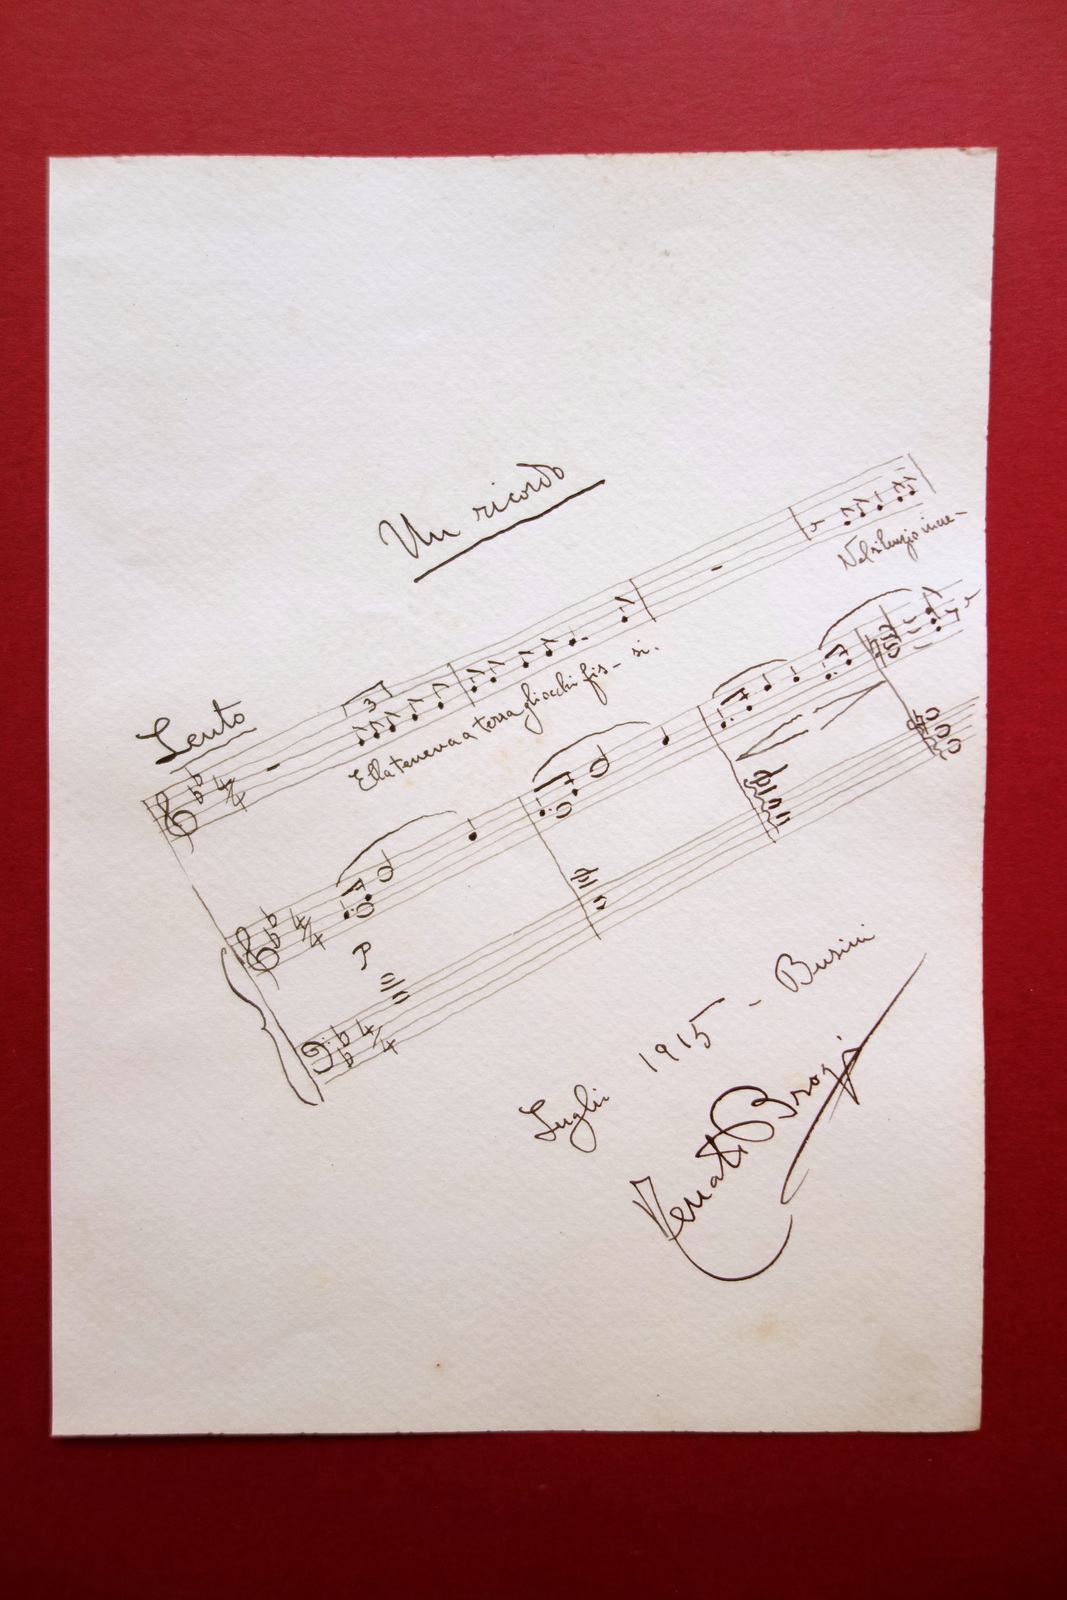 Un ricordo
Lento
3
Ella teneva a terra gli occhi fis- si.
Nel silenzio
4/4
4/4
p
4/4
Luglio 1915 - Busini
Renato Brogi